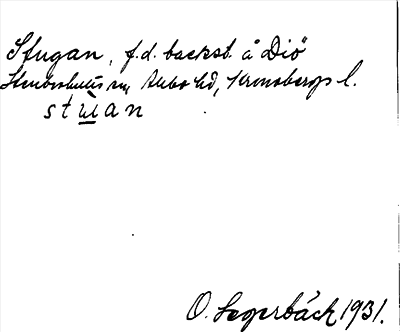 Stugan, f.d. backst. å Diö
Stenbrohults sn, Allbo hd, Kronobergs l.
stu̲an
O. Segerbäck 1931.